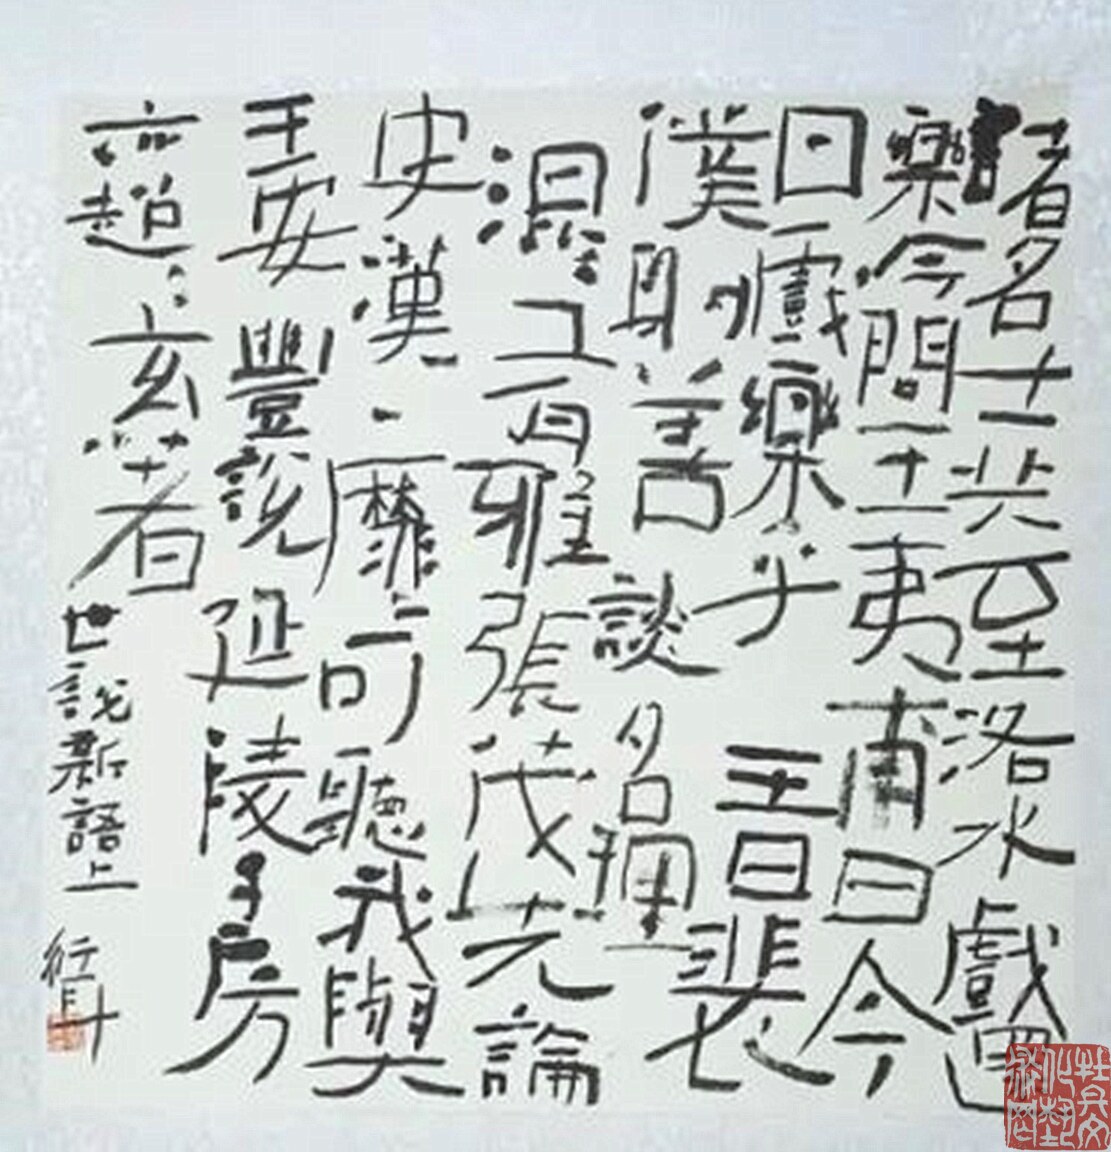 諸名士共至洛水戲還
樂令問王夷甫曰今
日戲樂乎王曰裴
僕射善談名理
混〻有雅張茂先論
史漢靡〻可聽我與
王安豐說延陵子房
亦超〻玄著
世說新語上